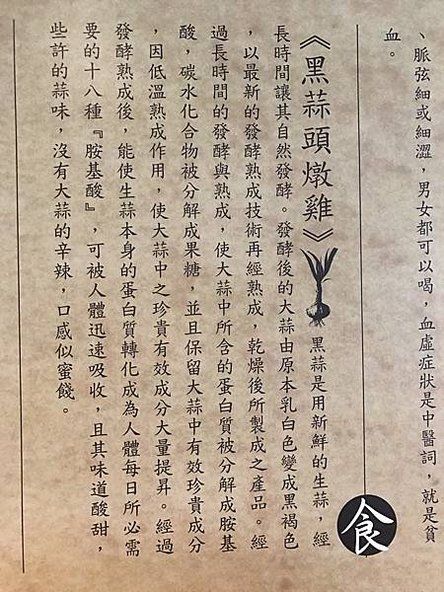 、脈弦細或細澀，男女都可以喝，血虛症狀是中醫詞，就是貧
血。
《黑蒜頭燉雞》黑蒜是用新鮮的生蒜，經
長時間讓其自然發酵。發酵後的大蒜由原本乳白色變成黑褐色
，以最新的發酵熟成技術再經熟成，乾燥後所製成之產品。經
過長時間的發酵與熟成，使大蒜中所含的蛋白質被分解成胺基
酸，碳水化合物被分解成果糖，並且保留大蒜中有效珍貴成分
，因低溫熟成作用，使大蒜中之珍貴有效成分大量提昇。經過
發酵熟成後，能使生蒜本身的蛋白質轉化成為人體每日所必需
要的十八種『胺基酸』，可被人體迅速吸收，且其味道酸甜，
些許的蒜味，沒有大蒜的辛辣，口感似蜜餞。
食